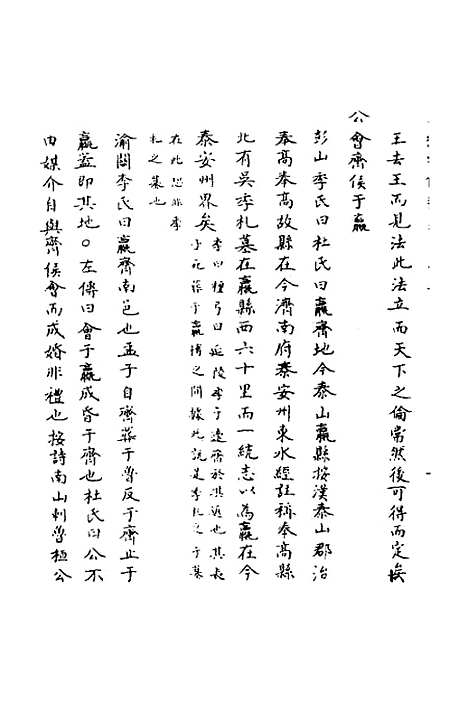 王去王而見法此法立而天下之倫常然後可得而定矣
公會齊侯于嬴
彭山季氏曰杜氏曰嬴齊地今泰山嬴縣按漢泰山郡治
奉高奉高故縣在今濟南府泰安州東水經註稱奉高縣
北有吳季札墓在嬴縣西六十里而一統志以為嬴在今
泰安州界矣
季曰檀弓曰延陵季子適齊於其返也其長
子死葬于嬴博之間據此說是季札之子墓
在此恐非季
札之墓也
渝關李氏曰嬴齊南邑也孟子自齊葬于魯反于齊止于
嬴蓋即其地○左傳曰會于嬴成昏于齊也杜氏曰公不
由媒介自與齊侯會而成婚非禮也按詩南山刺魯桓公